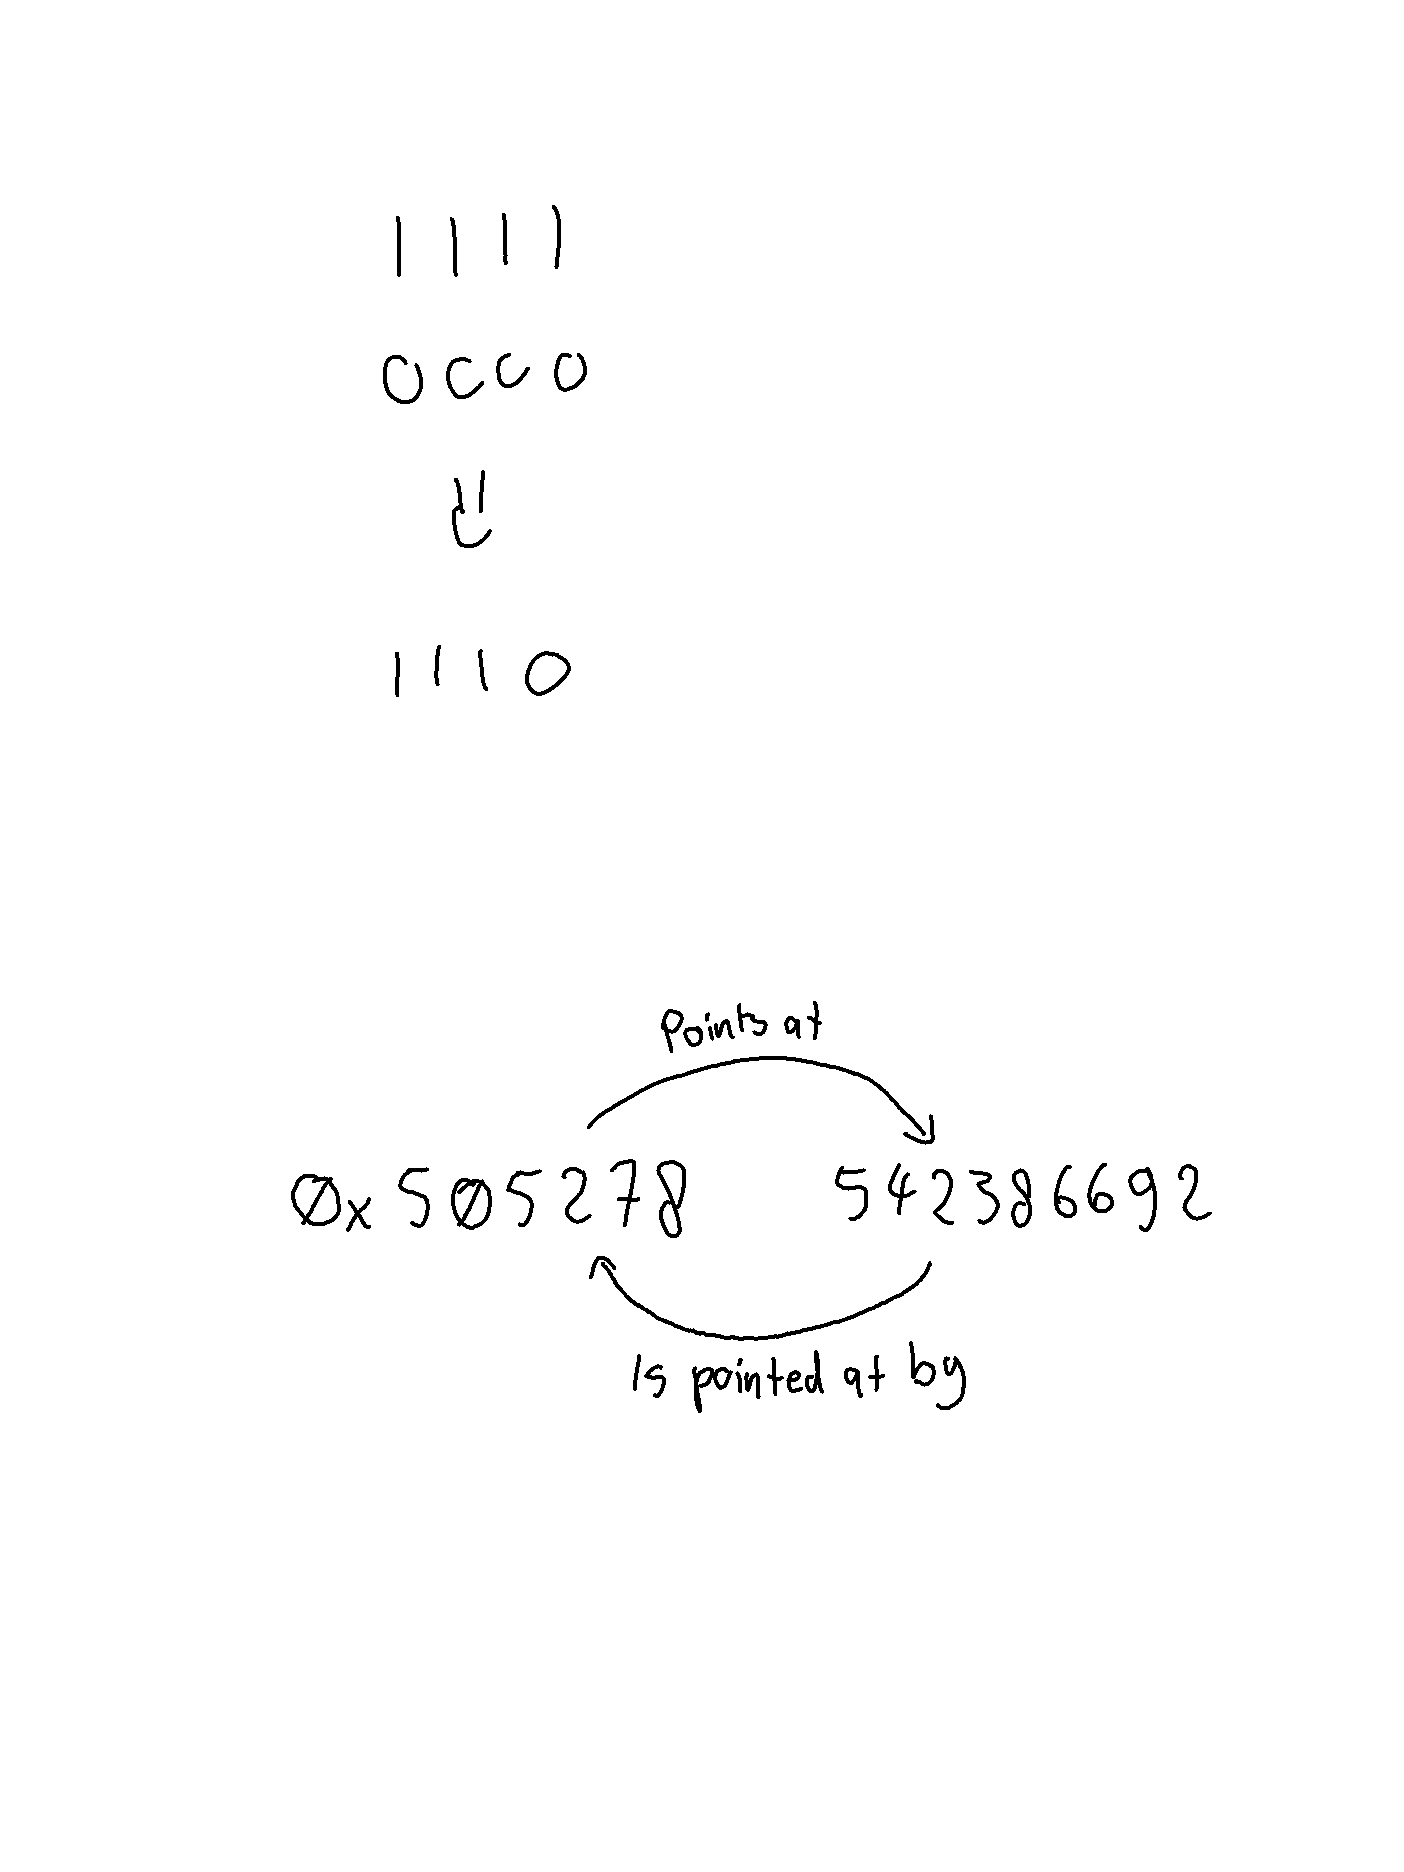 1111
0000
1110
Points at
0x505278 542386692
Is pointed at by